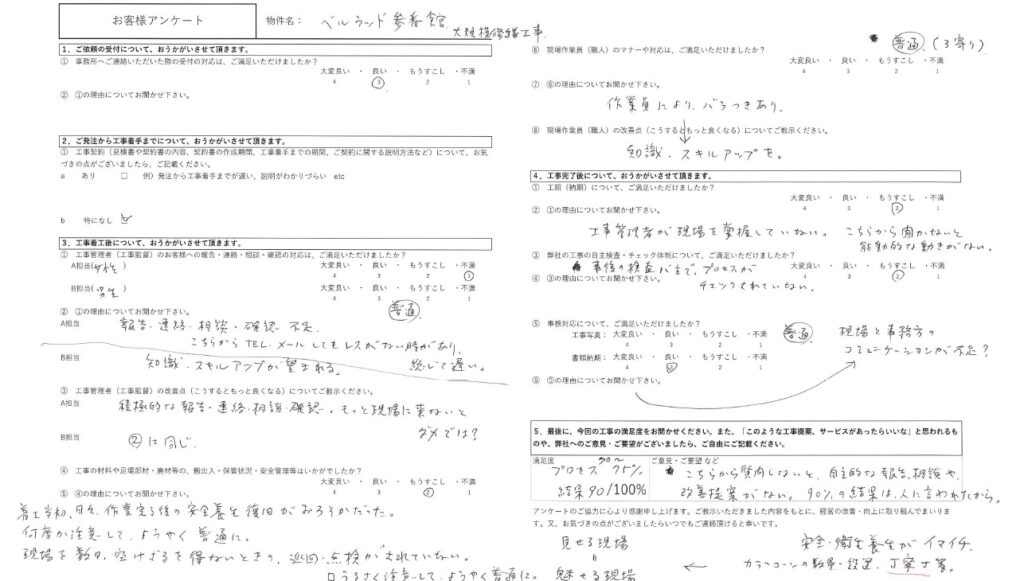 お客様アンケート
物件名： ベルウッド参番館
大規模修繕工事
1．ご依頼の受付について、おうかがいさせて頂きます。
① 事務所へご連絡いただいた際の受付の対応は、ご満足いただけましたか？
大変良い ・ 良い ・ もうすこし ・不満
4 3 2 1
② ①の理由についてお聞かせ下さい。
2．ご発注から工事着手までについて、おうかがいさせて頂きます。
① 工事契約（見積書や契約書の内容、契約書の作成期間、工事着手までの期間、ご契約に関する説明方法など）について、お気
づきの点がございましたら、ご記載ください。
a あり □ 例）発注から工事着手までが遅い、説明がわかりづらい etc
b 特になし ☑
3．工事着工後について、おうかがいさせて頂きます。
① 工事管理者（工事監督）のお客様への報告・連絡・相談・確認の対応は、ご満足いただけましたか？
A担当（女性） 大変良い ・ 良い ・ もうすこし ・不満
4 3 2 1
B担当（男性） 大変良い ・ 良い ・ もうすこし ・不満
4 3 2 1
普通
② ①の理由についてお聞かせ下さい。
A担当 報告・連絡・相談・確認 不足。
こちらからTEL・メールしてもレスがない時があり、
総じて遅い。
B担当 知識・スキルアップが望まれる。
③ 工事管理者（工事監督）の改善点（こうするともっと良くなる）についてご教示ください。
A担当 積極的な報告・連絡・相談・確認。もっと現場に来ないと
ダメでは？
B担当 ②に同じ．
④ 工事の材料や足場部材・廃材等の、搬出入・保管状況・安全管理等はいかがでしたか？
大変良い ・ 良い ・ もうすこし ・不満
4 3 2 1
⑤ ④の理由についてお聞かせ下さい。
着工当初、日々、作業完了後の安全養生復旧がおろそかだった。
何度か注意して、ようやく普通に。
現場を数日、空けざるを得ないときの、巡回・点検がされていない。
口うるさく注意して、ようやく普通に。
⑥ 現場作業員（職人）のマナーや対応は、ご満足いただけましたか？
普通．（3寄り）
大変良い ・ 良い ・ もうすこし ・不満
4 3 2 1
⑦ ⑥の理由についてお聞かせ下さい。
作業員により、バラつきあり．
⑧ 現場作業員（職人）の改善点（こうするともっと良くなる）についてご教示ください。
知識・スキルアップを。
4．工事完了後について、おうかがいさせて頂きます。
① 工期（納期）について、ご満足いただけましたか？
大変良い ・ 良い ・ もうすこし ・不満
4 3 2 1
② ①の理由についてお聞かせ下さい。
工事管理者が現場を掌握していない。こちらから聞かないと
能動的な動きがない。
③ 弊社の工事の自主検査・チェック体制について、ご満足いただけましたか？
大変良い ・ 良い ・ もうすこし ・不満
4 3 2 1
④ ③の理由についてお聞かせ下さい。
事後の検査が主で、プロセスが
チェックされていない．
⑤ 事務対応について、ご満足いただけましたか？
工事写真： 大変良い ・ 良い ・ もうすこし ・不満
4 3 2 1
普通
書類納期： 大変良い ・ 良い ・ もうすこし ・不満
4 3 2 1
現場と事務方の
コミュニケーションが不足？
⑥ ⑤の理由についてお聞かせ下さい。
5．最後に、今回の工事の満足度をお聞かせください。また、「このような工事提案、サービスがあったらいいな」と思われるも
のや、弊社へのご意見・ご要望がございましたら、ご自由にご記載ください。
満足度
70～
プロセス 75％
結果 90/100%
ご意見・ご要望 など
こちらから質問しないと、自主的な報告、相談や、
改善提案がない。90％の結果は、人に言われたから。
アンケートのご協力に心より感謝申し上げます。ご教示いただきました内容をもとに、経営の改善・向上に取り組んでまいりま
す。又、お気づきの点がございましたらいつでもご連絡頂けると幸いです。
見せる現場
＝
魅せる現場
←
安全・衛生養生がイマイチ．
カラーコーンの数量・設置、丁寧さ等。